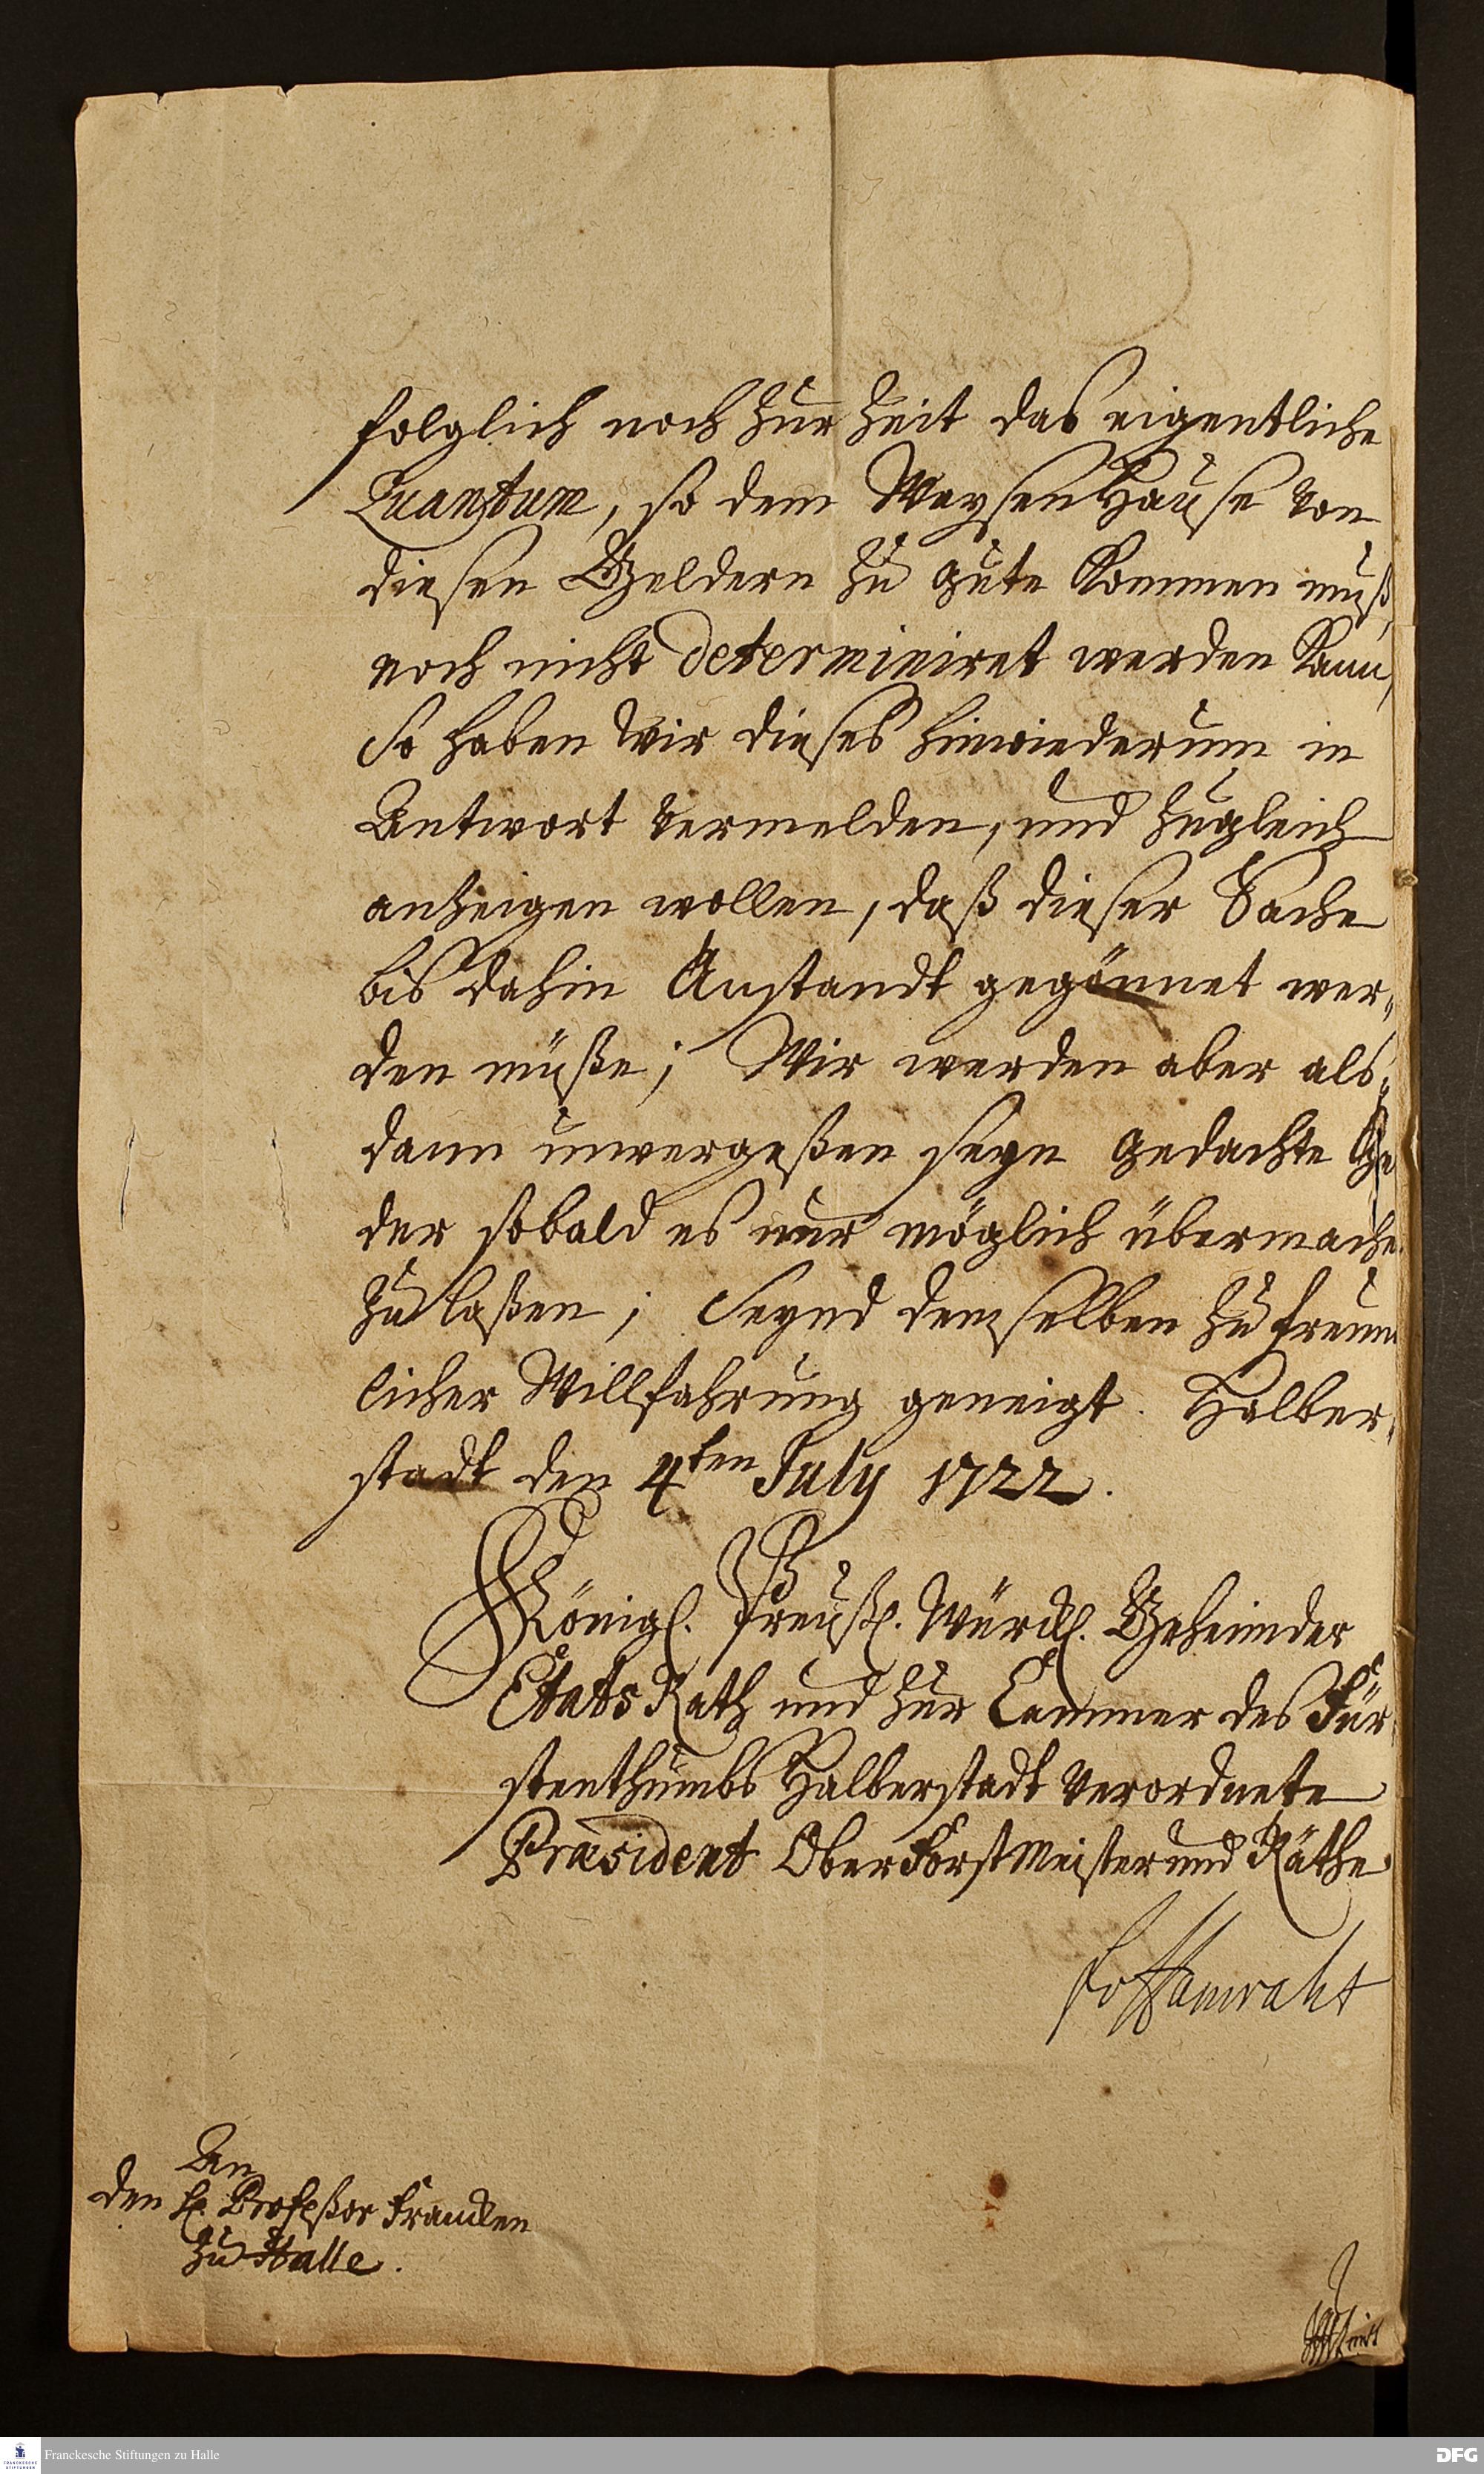 folglich noch zur Zeit das eigentliche
Quantum, so dem Waysen Hause von
diesen Geldern zu gute kommen muß,
noch nicht determiniret werden kann,
So haben wir dieses hinwiederum in
Antwort vermelden, und zugleich
anzeigen wollen, daß dieser Sache
bis dahin Anstandt gegönnet wer-
den müße; Wir werden aber als-
dann unvergeßen seyn gedachte Gel
der sobald es nur möglich übermache
zu laßen; Seynd demselben zu freun
licher Willfahrung geneigt. Halber-
stadt den 4ten July 1722.
Königl. Preußl. Würckl. Geheimder
Etats Rath und zur Cammer des Für
stenthumbs Halberstadt Verordnete
Præsident Ober Forst Meister und Räthe
An
den H. Profeßor Francken
zu Halle.
Franckesche Stiftungen zu Halle
FRANCKESCHE STIFTUNGEN
DFG